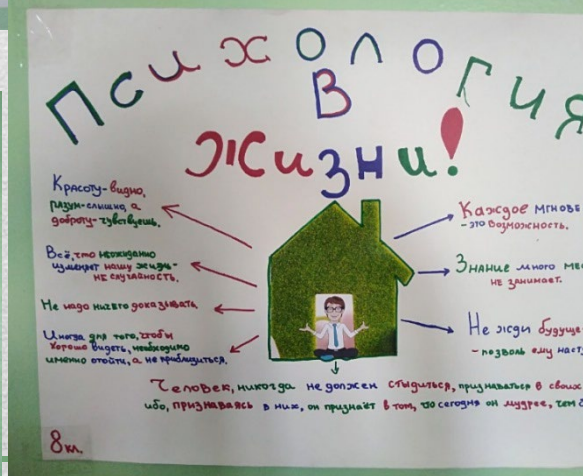 Психология
в
жизни!
Красоту-видно,
разум-слышно, а
доброту-чувствуешь.
Всё, что неожиданно
изменяет нашу жизнь-
не случайность.
Не надо ничего доказывать.
Иногда для того, чтобы
хорошо видеть, необходимо
именно отойти, а не приблизиться.
Каждое мгнове
- это возможность.
Знание много мес
не занимает.
Не жди будуще
- позволь ему наст
Человек, никогда не должен стыдиться, признаваться в своих
ибо, признаваясь в них, он признаёт в том, что сегодня он мудрее, чем
8 кл.